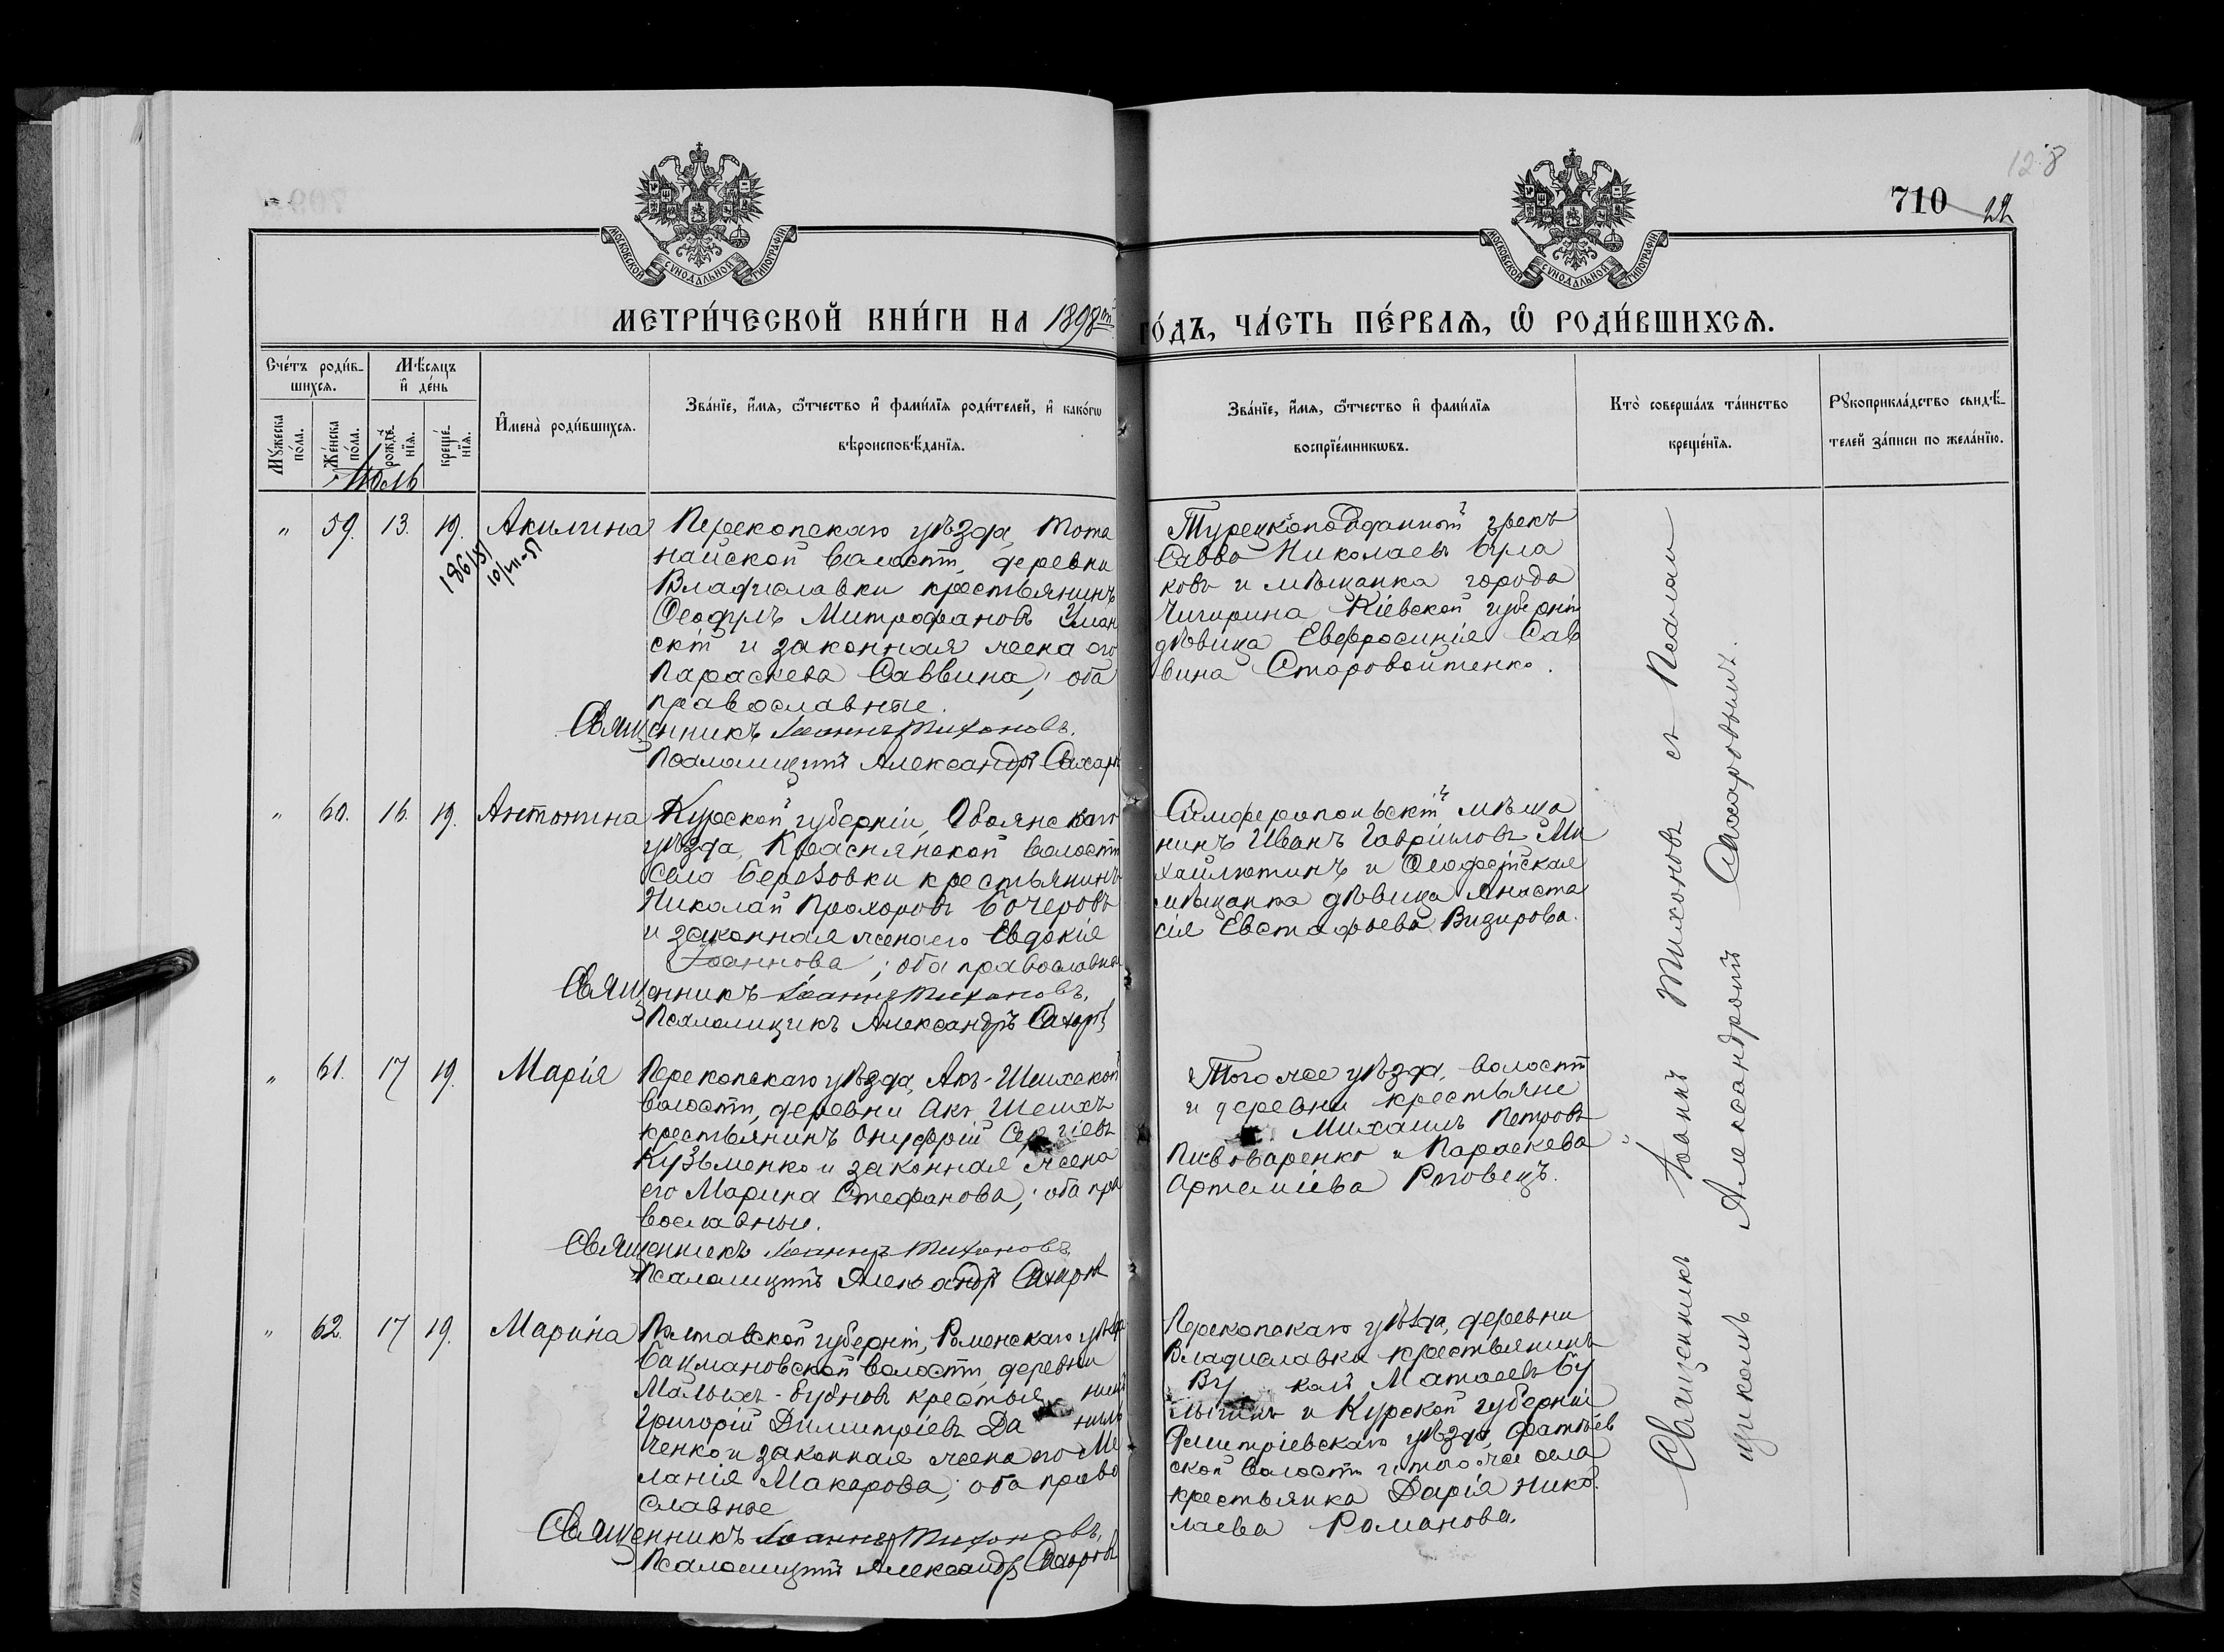 128
710
22
МОСКОВСКОЙ СѴНОДАЛЬНОЙ ТИПОГРАФІИ
МОСКОВСКОЙ СѴНОДАЛЬНОЙ ТИПОГРАФІИ
МЕТРИ́ЧЕСКОЙ КНИ́ГИ НА 1898й ГО́ДЪ, ЧА́СТЬ ПЕ́РВАѦ, Ѡ РОДИ́ВШИХСѦ.
Сче́тъ роди́вшихсѧ.
Мѣ́сѧцъ и де́нь
Мꙋ́жеска по́ла.
Же́нска по́ла.
рожде́нїѧ.
креще́нїѧ.
Имена̀ роди́вшихсѧ.
Зва́нїе, и́мѧ, ѿтчество и фами́лїѧ роди́телей, и како́гѡ вѣроисповѣ́данїѧ.
Зва́нїе, и́мѧ, ѿтчество и фами́лїѧ воспрїе́мникѡвъ.
Кто̀ соверша́лъ та́инство креще́нїѧ.
Рꙋкоприкла́дство свидѣ́телей за́писи по жела́нїю.
Іюль
" 59. 13. 19. Акилина
186/81
10/VII-51
Перекопскаго уѣзда, Тота
найской волости, деревни
Владиславки крестьянинъ
Ѳеофилъ Митрофановъ Уман
скій и законная жена его
Параскева Саввина, оба
православные.
Священникъ Іоаннъ Тихоновъ.
Псаломщикъ Александръ Сахаров
Турецкоподданный грекъ
Савва Николаевъ Бурла
ковъ и мѣщанка города
Чигирина Кіевской губерніи
дѣвица Евфросинія Сав
вина Старовойтенко.
" 60. 16. 19. Антонина
Курской губерніи, Обоянскаго
уѣзда, Краснянской волости
села Березовки крестьянинъ
Николай Прохоровъ Бочеровъ
и законная жена его Евдокія
Іоаннова; оба православны
Священникъ Іоаннъ Тихоновъ.
Псаломщикъ Александръ Сахаров
Симферопольскій мѣща
нинъ Иванъ Гавріиловъ Ми
хайлютинъ и Ѳеодосійская
мѣщанка дѣвица Анаста
сія Евстафьева Визирова.
" 61. 17 19. Марія
Перекопскаго уѣзда, Акъ-Шеихской
волости, деревни Акъ Шеихъ
крестьянинъ Онуфрій Сергіевъ
Кузьменко и законная жена
его Марина Стефанова; оба пра
вославные.
Священникъ Іоаннъ Тихоновъ
Псаломщикъ Александръ Сахаров
Того же уѣзда, волости
и деревни крестьяне
Михаилъ Петровъ
Пивоваренко и Параскева
Артеміева Роговецъ.
" 62. 17 19. Марина
Полтавской губерніи, Роменскаго уѣзда
Бацмановской волости, деревни
Малыхъ-Бубновъ крестья нинъ
Григорій Димитріевъ Да нил
ченко и законная жена его Ме
ланія Макарова; оба право
славные
Священникъ Іоаннъ Тихоновъ.
Псаломщикъ Александръ Сахаров
Перекопскаго уѣзда, деревни
Владиславки крестьянинъ
Матѳеевъ Бу
лыгинъ и Курской губерніи
Дмитріевскаго уѣзда, Фатѣев
ской волости и того же села
крестьянка Дарія Нико
лаева Романова.
Священникъ Іоаннъ Тихоновъ съ Псалом
щикомъ Александромъ Сахаровымъ.